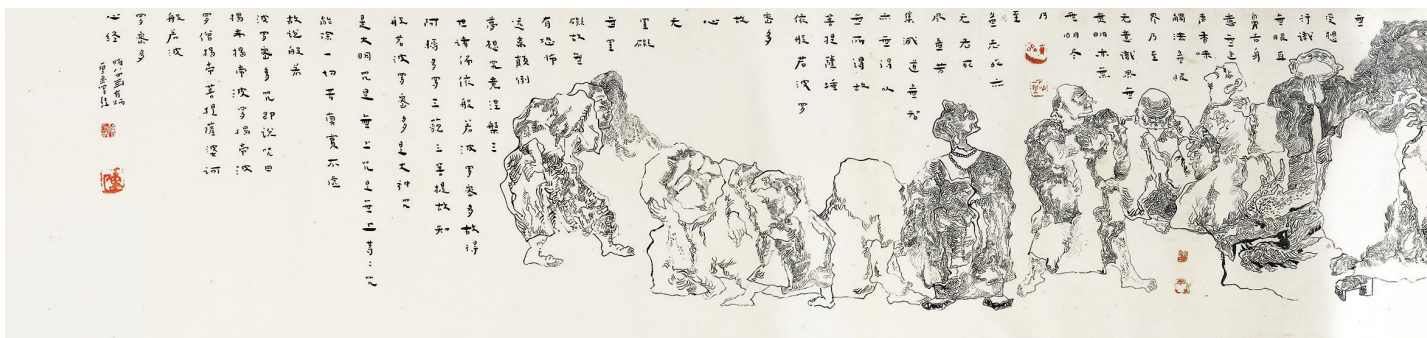 無
受想
行識
無眼耳
鼻舌身
意無色
声香味
觸法無眼
界乃至
无意識界無
無明亦無
無明尽
乃
至
無老死亦
无老死
尽無苦
集滅道無智
亦無得以
無所得故
菩提薩埵
依般若波罗
密多
故
心
无
罣礙
無罣
礙故無
有恐怖
远離颠倒
夢想究竟涅槃三
世诸佛依般若波罗密多故得
阿耨多罗三藐三菩提故知
般若波罗密多是大神咒
是大明咒是無上咒是無上等〻咒
能除一切苦真實不虚
故说般若
波罗密多咒即说咒曰
揭帝揭帝波罗揭帝波
罗僧揭帝菩提薩婆诃
般若波
罗密多
心经